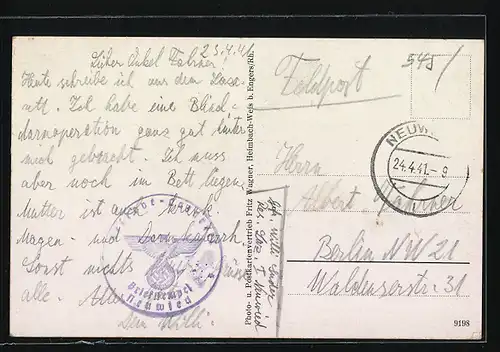 23.4.41
Lieber Onkel Fahrner!
Heute schreibe ich aus dem Laza-
rett. Ich habe eine Blind-
darmoperation ganz gut hinter
mich gebracht. Ich muss
aber noch im Bett liegen.
Mutter ist auch krank
Magen- und Darmkatarrh.
Sonst nichts
alle.
Dein Willi.
Briefstempel
Neuwied
Photo- u. Postkartenvertrieb Fritz Wagner, Heimbach-Weis b. Engers/Rh.
Willi
Res. Laz. I Neuwied
Feldpost
545
NEUWIED
24.4.41.-9
Herrn
Albert Fahrner
Berlin NW 21
Waldenserstr. 31
9198